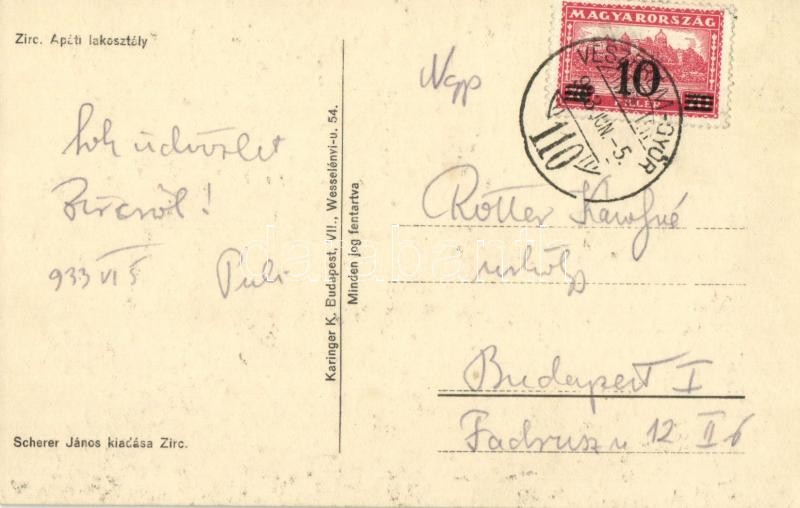 Zirc. Apáti lakosztály
Sok üdvözlet
Zircről!
933 VI 5
Puli
Scherer János kiadása Zirc.
Karinger K. Budapest, VII., Wesselényi-u. 54.
Minden jog fentartva
MAGYARORSZÁG
10
VESZPRÉM-GYŐR
JUN. -5.
110
Ngs
Rotter Károlyné
úrhölgy
Budapest I
Fadrusz u 12 II 6
darabanth